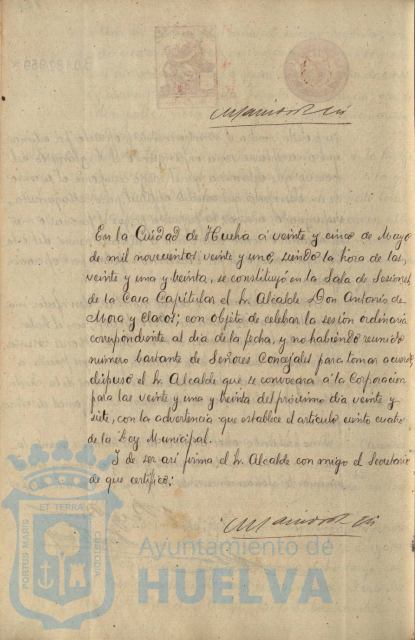 En la Ciudad de Huelva á veinte y cinco de Mayo
de mil novecientos veinte y uno, siendo la hora de las
veinte y una y treinta, se constituyó en la Sala de Sesiones
de la Casa Capitular el Sr. Alcalde Don Antonio de
Mora y Claros; con objeto de celebrar la sesión ordinaria
correspondiente al dia de la fecha, y no habiendo reunido
número bastante de Señores Concejales para tomar acuerdo,
dispuso el Sr. Alcalde que se convocara á la Corporación
para las veinte y una y treinta del próximo dia veinte y
siete, con la advertencia que establece el artículo ciento cuatro
de la Ley Municipal.
Y de ser así firma el Sr. Alcalde con migo el Secretario
de que certifico:
PORTUS MARIS ET TERRÆ CUSTODIA
Ayuntamiento de
HUELVA